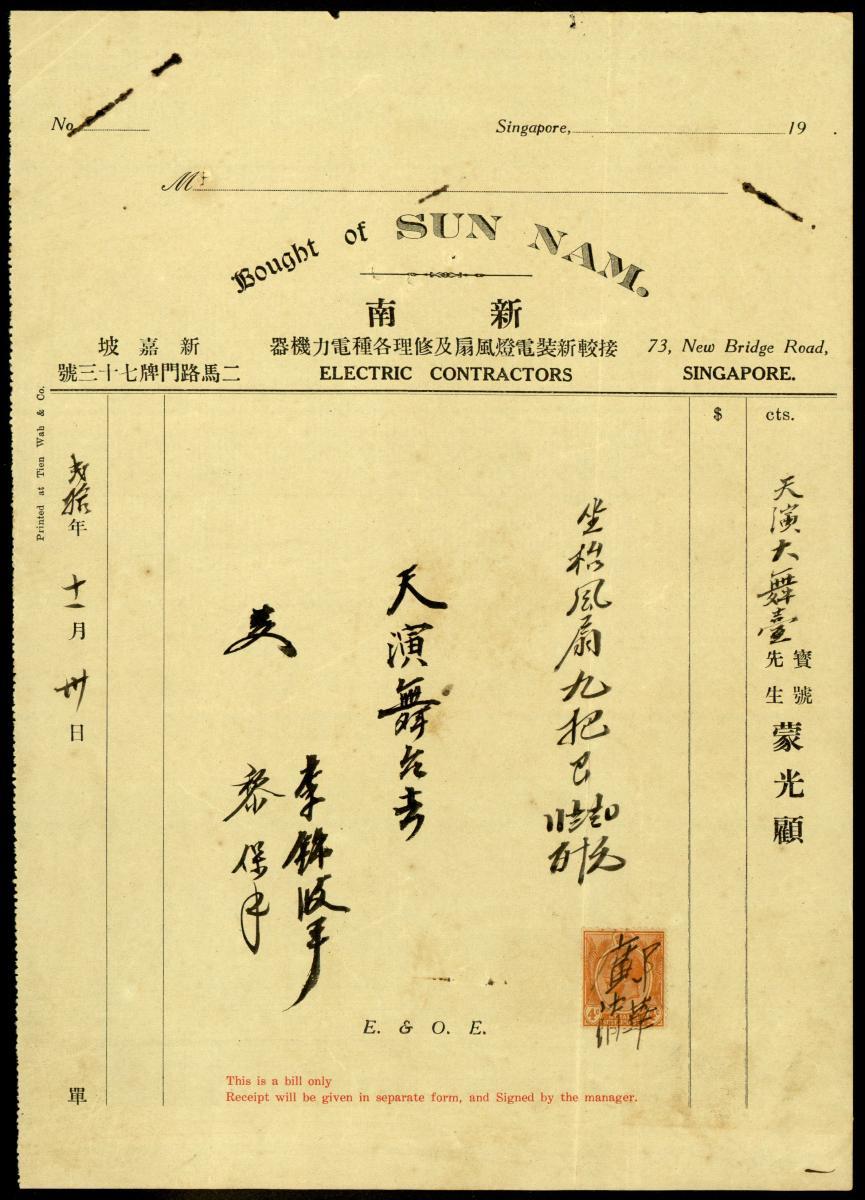 No
Singapore, 19
Mr
Bought of SUN NAM.
南 新
器機力電種各理修及扇風燈電裝新較接
ELECTRIC CONTRACTORS
坡 嘉 新
號三十七牌門路馬二
73, New Bridge Road,
SINGAPORE.
$ cts.
天演大舞臺
寶號
先生
蒙光顧
坐枱風扇九把
天演舞台
李錦波
黎保
鄺
華
弍拾年十一月卅日
單
E. & O. E.
This is a bill only
Receipt will be given in separate form, and Signed by the manager.
Printed at Tien Wah & Co.